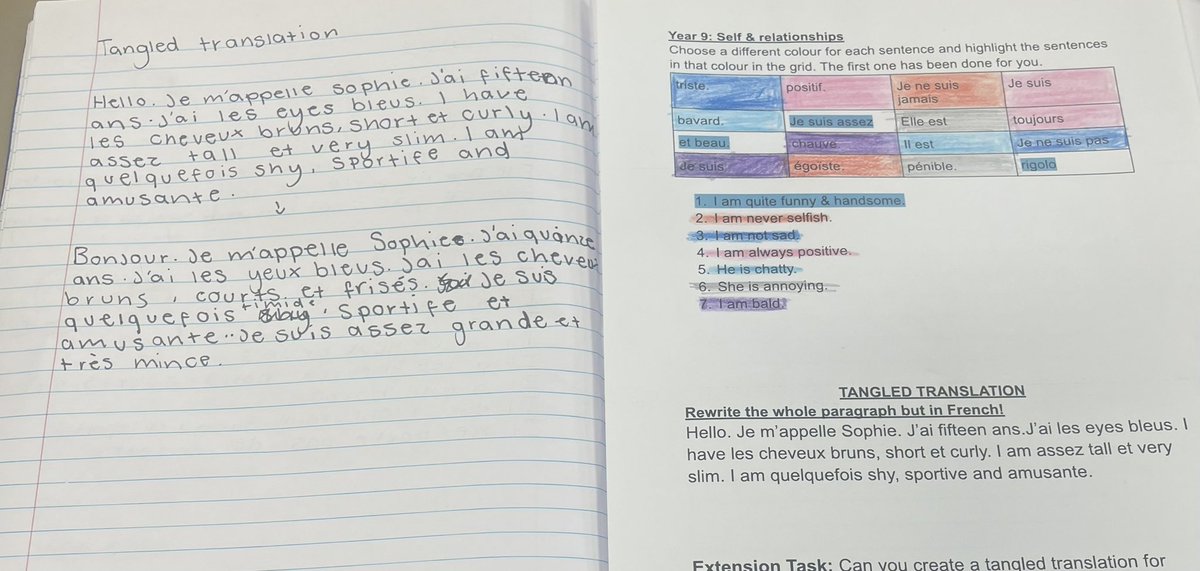 Tangled translation
Hello. Je m'appelle Sophie. J'ai fifteen
ans. J'ai les eyes bleus. I have
les cheveux bruns, short et curly. I am
assez tall et very slim. I am
quelquefois shy, sportife and
amusante.
Bonjour. Je m'appelle Sophie. J'ai quinze
ans. J'ai les yeux bleus. J'ai les cheveux
bruns, courts et frisés. Je suis
quelquefois timide, sportife et
amusante. Je suis assez grande et
très mince.
Year 9: Self & relationships
Choose a different colour for each sentence and highlight the sentences
in that colour in the grid. The first one has been done for you.
triste. positif. Je ne suis jamais Je suis
bavard. Je suis assez Elle est toujours
et beau. chauve Il est Je ne suis pas
Je suis égoïste. pénible. rigolo
1. I am quite funny & handsome.
2. I am never selfish.
3. I am not sad.
4. I am always positive.
5. He is chatty.
6. She is annoying.
7. I am bald.
TANGLED TRANSLATION
Rewrite the whole paragraph but in French!
Hello. Je m'appelle Sophie. J'ai fifteen ans.J'ai les eyes bleus. I
have les cheveux bruns, short et curly. I am assez tall et very
slim. I am quelquefois shy, sportive and amusante.
Extension Task: Can you create a tangled translation for